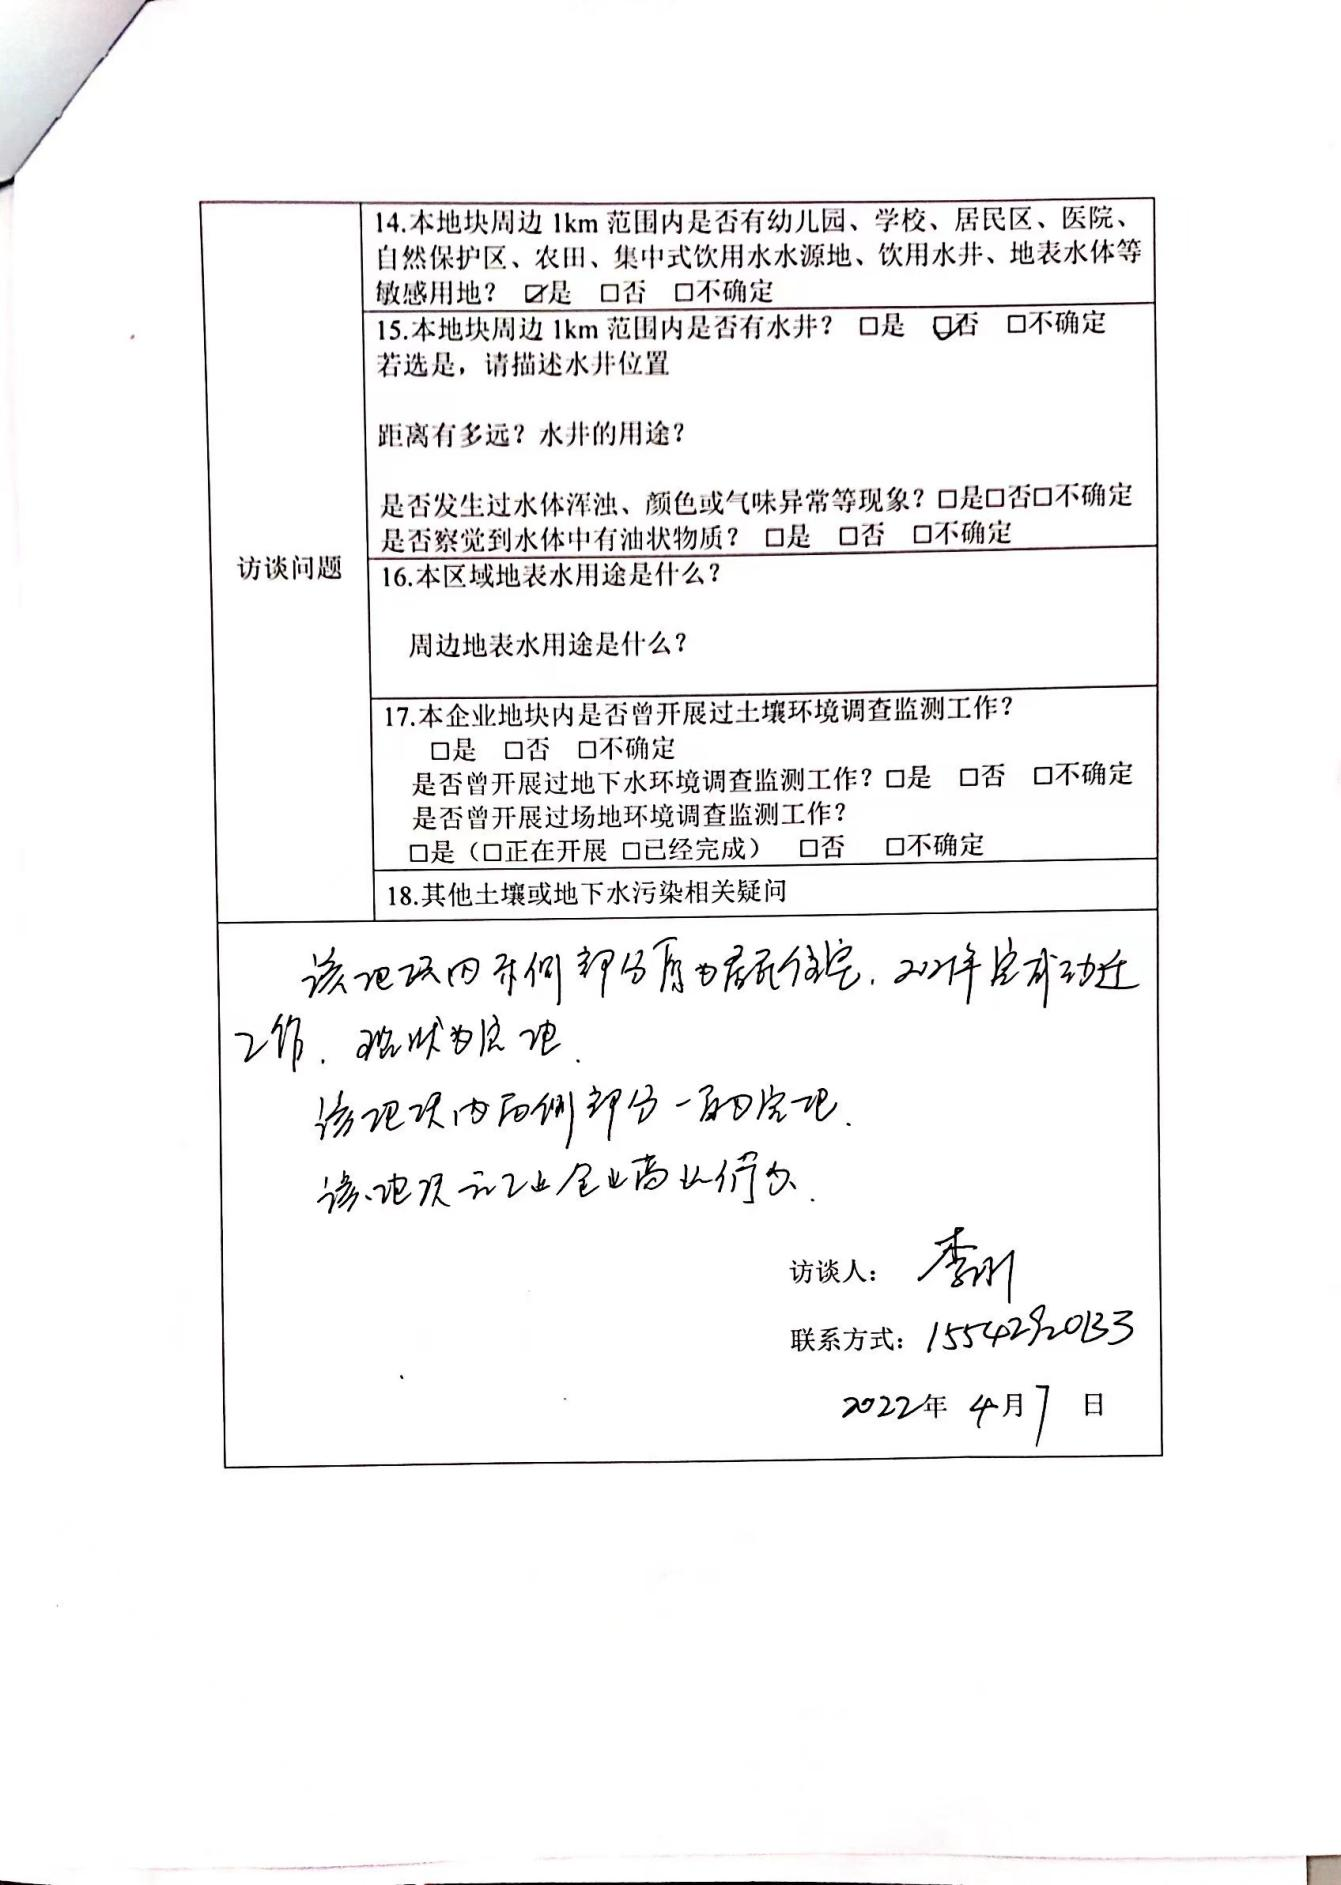 14.本地块周边 1km 范围内是否有幼儿园、学校、居民区、医院、
自然保护区、农田、集中式饮用水水源地、饮用水井、地表水体等
敏感用地？ ☑是 □否 □不确定
15.本地块周边 1km 范围内是否有水井？ □是 ☑否 □不确定
若选是，请描述水井位置
距离有多远？水井的用途？
是否发生过水体浑浊、颜色或气味异常等现象？□是□否□不确定
是否察觉到水体中有油状物质？ □是 □否 □不确定
访谈问题
16.本区域地表水用途是什么？
周边地表水用途是什么？
17.本企业地块内是否曾开展过土壤环境调查监测工作？
□是 □否 □不确定
是否曾开展过地下水环境调查监测工作？□是 □否 □不确定
是否曾开展过场地环境调查监测工作？
□是（□正在开展 □已经完成） □否 □不确定
18.其他土壤或地下水污染相关疑问
该地块内东侧部分原为居民住宅，2021年完成动迁
工作，现状为空地.
该地块内西侧部分一直为空地.
该地块无工业企业商业行为.
访谈人： 李刚
联系方式：15542920133
2022年 4月7日